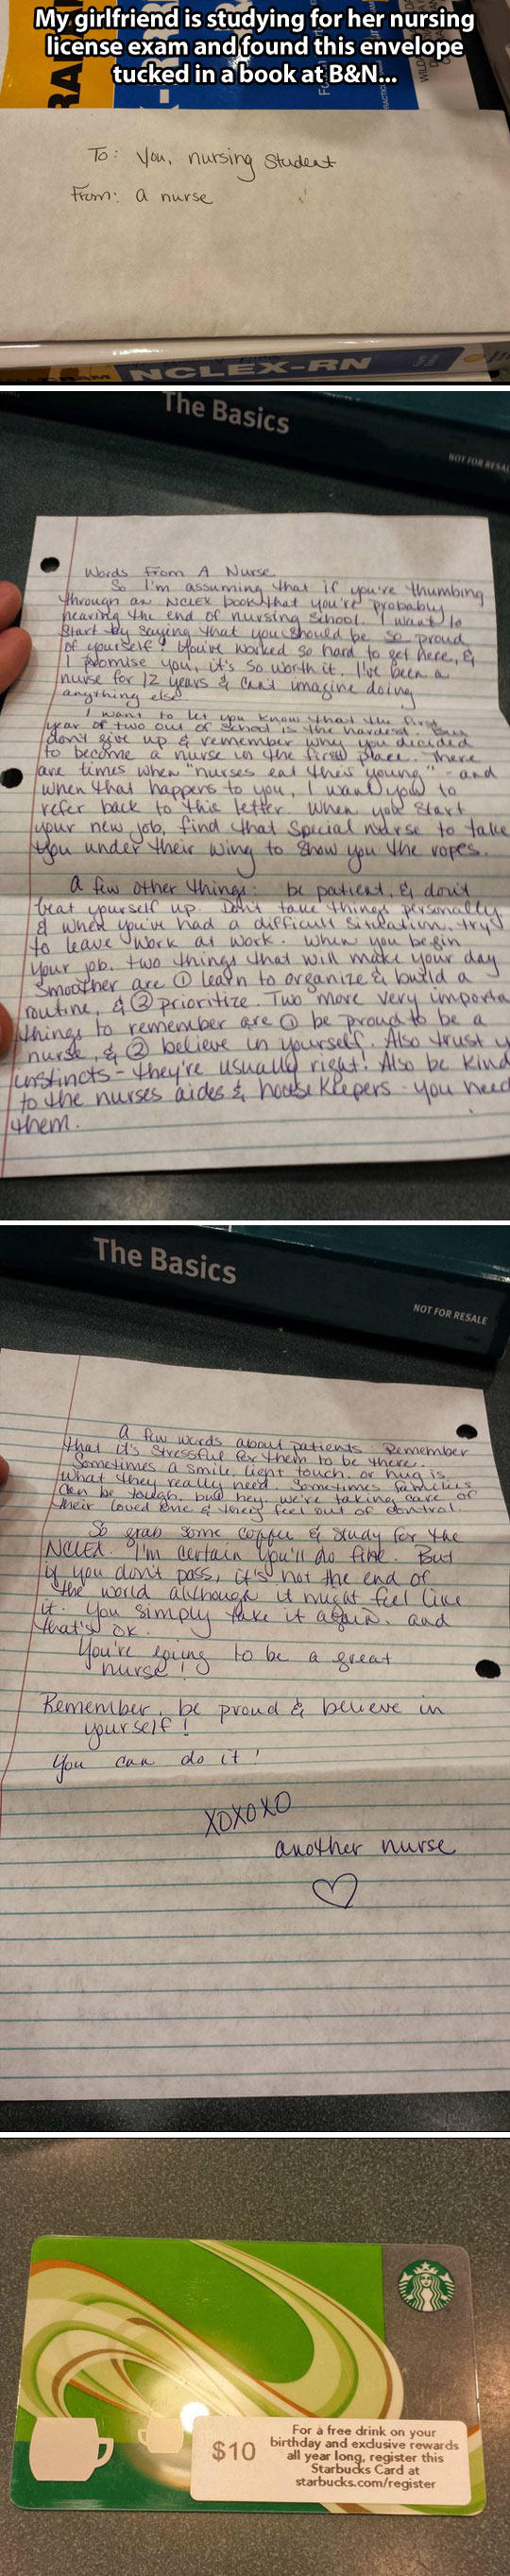 My girlfriend is studying for her nursing
license exam and found this envelope
tucked in a book at B&N...
To: You, nursing Student
From: a nurse
NCLEX-RN
The Basics
NOT FOR RESAL
Words From A Nurse
So I'm assuming that if you're thumbing
through an NCLEX book that you're probably
nearing the end of nursing school. I want to
start by saying that you should be so proud
of yourself! You've worked so hard to get here, &
I promise you, it's so worth it. I've been a
nurse for 12 years & can't imagine doing
anything else.
I want to let you know that the first
year or two out of school is the hardest. But
don't give up & remember why you decided
to become a nurse in the first place. There
are times when "nurses eat their young" - and
when that happens to you, I want you to
refer back to this letter. When you start
your new job, find that special nurse to take
you under their wing to show you the ropes.
A few other things: be patient, & don't
beat yourself up. Don't take things personally
& when you've had a difficult situation, try
to leave work at work. When you begin
your job, two things that will make your day
smoother are ① learn to organize & build a
routine, & ② prioritize. Two more very importa
things to remember are ① be proud to be a
nurse, & ② believe in yourself. Also trust y
instincts - they're usually right! Also be kind
to the nurses aides & housekeepers - you need
them.
The Basics
NOT FOR RESALE
A few words about patients. Remember
that it's stressful for them to be there.
Sometimes a smile, light touch, or hug is
what they really need. Sometimes families
can be tough, but hey, we're taking care of
their loved one & they feel out of control.
So grab some coffee & study for the
NCLEX. I'm certain you'll do fine. But
if you don't pass, it's not the end of
the world although it might feel like
it. You simply take it again, and
that's OK.
You're going to be a great
nurse!
Remember, be proud & believe in
yourself!
You can do it!
XOXOXO
another nurse
$10
For a free drink on your
birthday and exclusive rewards
all year long, register this
Starbucks Card at
starbucks.com/register